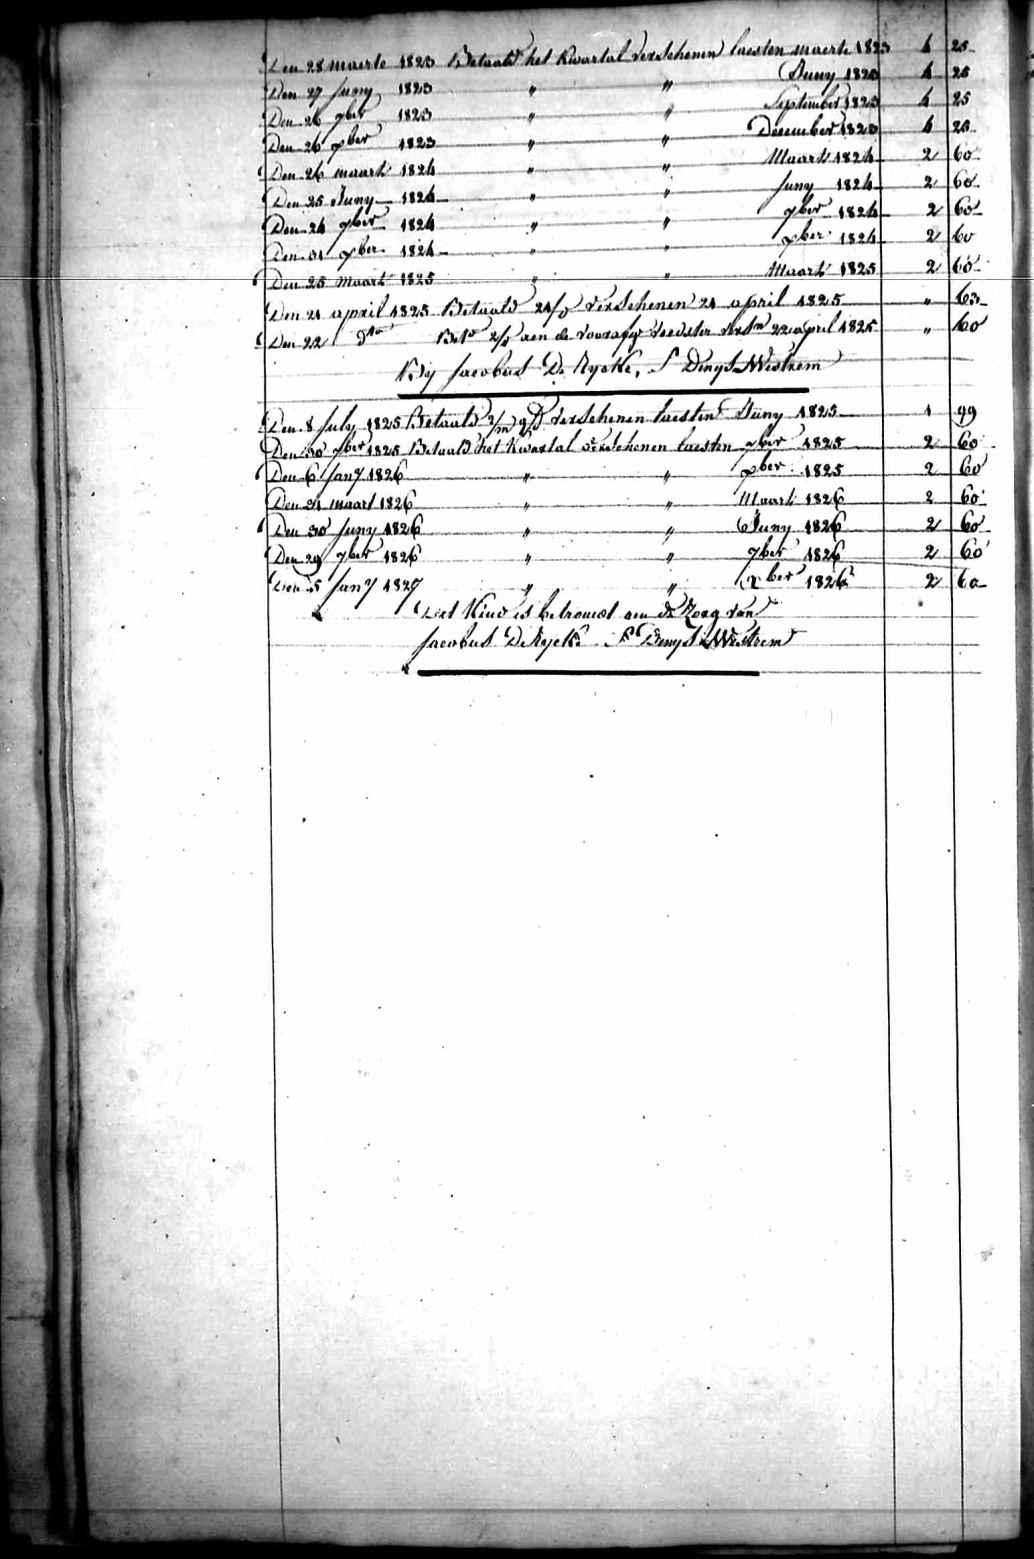 Den 28 maerte 1823 Betaald het Kwartal verschenen laesten maerte 1823 4 25
Den 27 Juny 1823 " " Juny 1823 4 25
Den 26 7ber 1823 " " September 1823 4 25
Den 26 xber 1823 " " December 1823 4 25
Den 26 maart 1824 " " Maart 1824 2 60
Den 25 Juny 1824 " " Juny 1824 2 60
Den 24 7ber 1824 " " 7ber 1824 2 60
Den 31 xber 1824 " " xber 1824 2 60
Den 25 maart 1825 " " Maart 1825 2 60
Den 21 april 1825 Betaald 21/ verschenen 21 april 1825 " 63
Den 22 dto aen de 22 april 1825 " 60
By Jacobus De Rycke, St Denys Westrem
Den 8 July 1825 Betaald 2/m 9/ verschenen laesten Juny 1825 1 99
Den 30 7ber 1825 Betaald het Kwartal verschenen laesten 7ber 1825 2 60
Den 6 Jany 1826 " " xber 1825 2 60
Den 31 maart 1826 " " Maart 1826 2 60
Den 30 Juny 1826 " " Juny 1826 2 60
Den 29 7ber 1826 " " 7ber 1826 2 60
Den 5 Jany 1827 " " xber 1826 2 60
Het Kind is betrouwt aen de Zorg van
Jacobus De Rycke St Denys Westrem